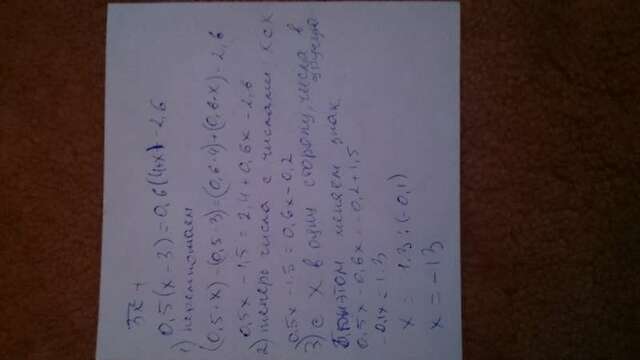 0,5(x-3)=0,6(4+x)-2,6
1) перемножаем
(0,5·x)-(0,5·3)=(0,6·4)+(0,6·x)-2,6
0,5x-1,5=2,4+0,6x-2,6
2) теперь числа с числами, x с x
0,5x-1,5=0,6x-0,2
3) с x в одну сторону, числа в другую
При этом меняем знак
0,5x-0,6x=-0,2+1,5
-0,1x=1.3
x=1.3:(-0,1)
x=-13